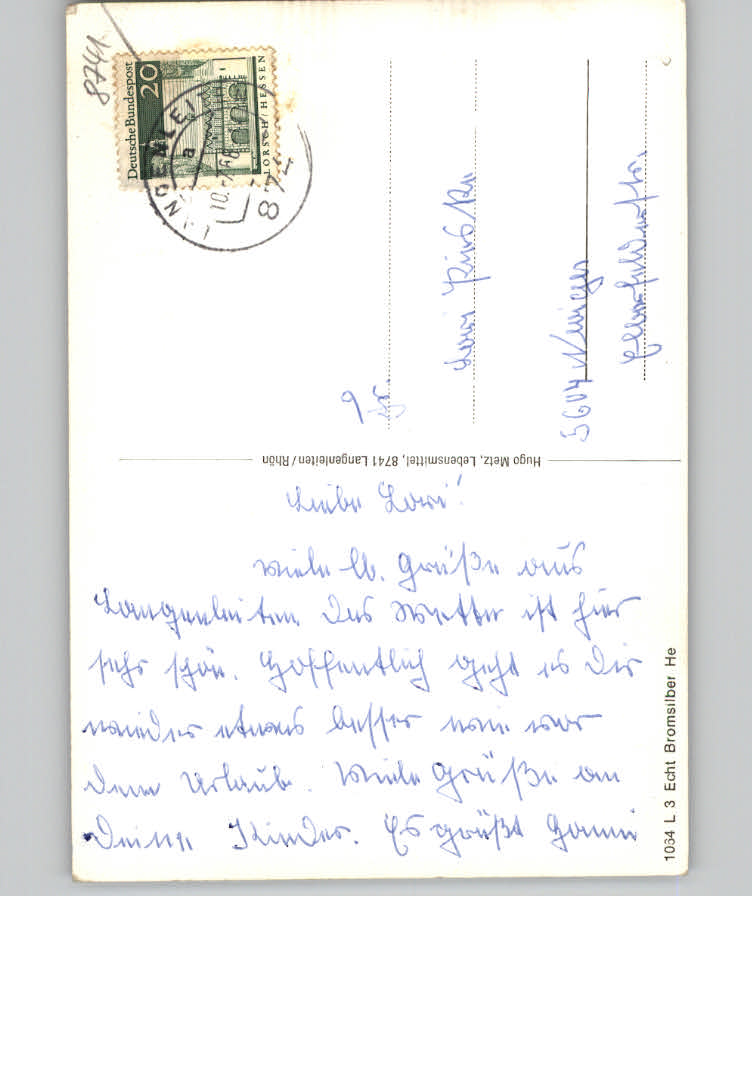 8741
Deutsche Bundespost
20
LORSCH / HESSEN
LANGENLEI
a
10.
68
874
5604 Neviges
Hugo Metz, Lebensmittel, 8741 Langenleiten / Rhön
Liebe Lori!
Viele lb. Grüße aus
Langenleiten Das Wetter ist hier
sehr schön. Hoffentlich geht es Dir
wieder etwas besser wie vor
dem Urlaub. Viele Grüße an
Deine Kinder. Es grüßt Hanni
1064 L 3 Echt Bromsilber He